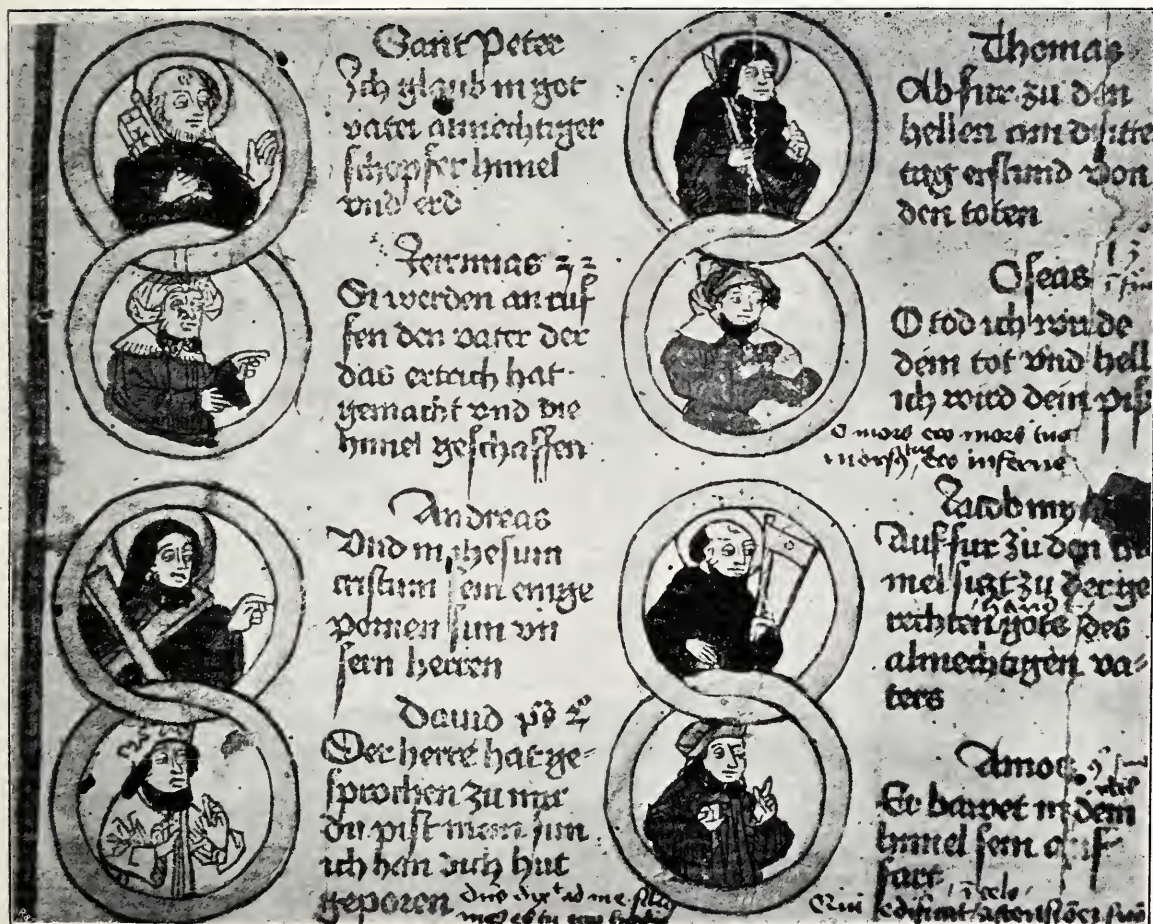 Sant Peter
Ich glaub in got
vater almechtiger
schopfer himel
vnd erd
Jeremias
Si werden an ruf
fen den vater der
das ertrich hat
gemacht vnd die
himel geschaffen
Andreas
Vnd in ihesum
cristum sein einige
pornen sun vn
sern herren
Dauid
Der herre hat ge=
sprochen zu mir
du pist mein sun
ich han dich hut
geporen
Thomas
Ab fur zu den
hellen am dritte
tag erstund von
den toten
Oseas
O tod ich wir de
dem tot vnd hell
ich wird dein piß
O mors ero mors tua
morsus tuus ero inferne
Jacob
Auf fur zu den
mel sitzt zu der ge
hand
rechten gots des
almechtigen va=
ters
Amos
Er bawet in dem
himel sein auf
fart